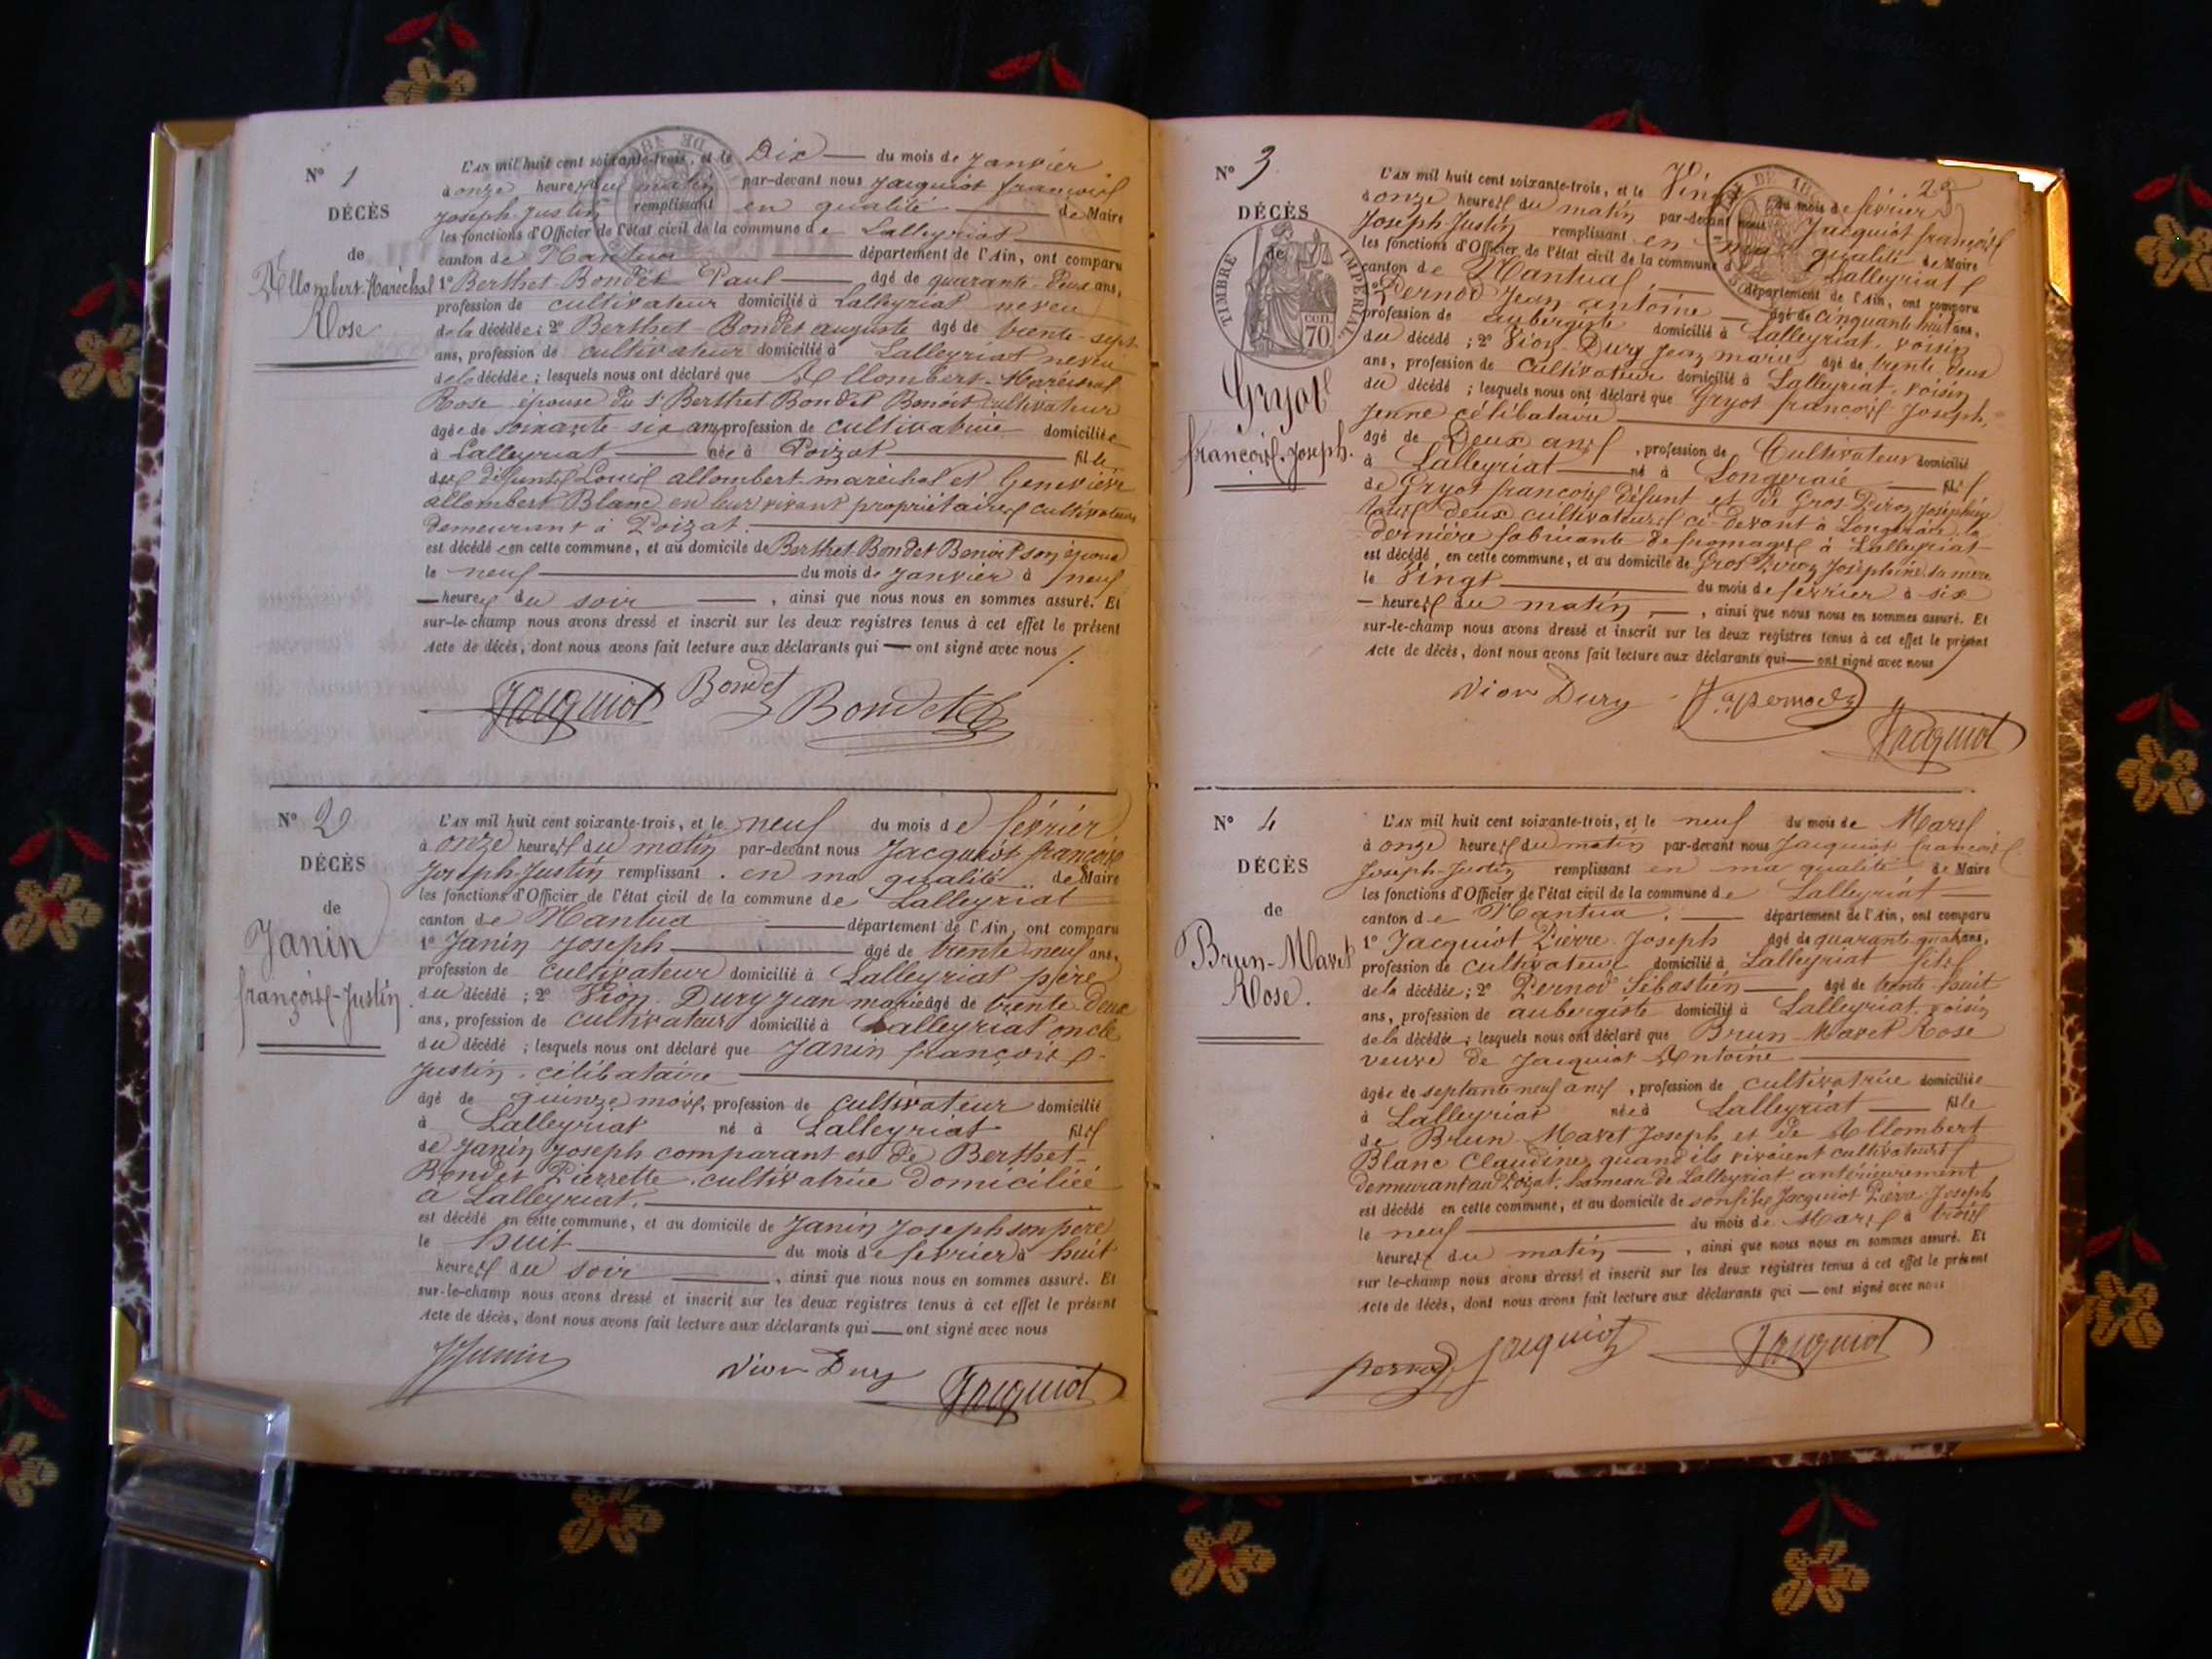 N° 1
DÉCÈS
de
Allombert-Maréchal
Rose
L'AN mil huit cent soixante-trois, et le Dix du mois de Janvier
à onze heures du matin par-devant nous Jacquiot françois
Joseph Justin remplissant en qualité de Maire
les fonctions d'Officier de l'état civil de la commune de Lalleyriat
canton de Nantua département de l'Ain, ont comparu
1° Berthet-Bondet Paul âgé de quarante-deux ans,
profession de cultivateur domicilié à Lalleyriat neveu
de la décédée; 2° Berthet-Bondet auguste âgé de trente-sept
ans, profession de cultivateur domicilié à Lalleyriat neveu
de la décédée; lesquels nous ont déclaré que Allombert-Maréchal
Rose épouse du s. Berthet Bondet Benoit cultivateur
âgée de soixante six ans, profession de cultivatrice domiciliée
à Lalleyriat née à Poizat fille
des défunts Louis allombert-maréchal et Geneviève
allombert Blanc en leur vivant propriétaires cultivateurs
demeurant à Poizat.
est décédée en cette commune, et au domicile de Berthet-Bondet Benoit son époux
le neuf du mois de Janvier à neuf
heures du soir, ainsi que nous nous en sommes assuré. Et
sur-le-champ nous avons dressé et inscrit sur les deux registres tenus à cet effet le présent
Acte de décès, dont nous avons fait lecture aux déclarants qui ont signé avec nous
Jacquiot Bondet Bondet
N° 2
DÉCÈS
de
Janin
françois-Justin.
L'AN mil huit cent soixante-trois, et le neuf du mois de février
à onze heures du matin par-devant nous Jacquiot françois
Joseph Justin remplissant en ma qualité de Maire
les fonctions d'Officier de l'état civil de la commune de Lalleyriat
canton de Nantua département de l'Ain, ont comparu
1° Janin Joseph âgé de trente neuf ans,
profession de cultivateur domicilié à Lalleyriat père
du décédé; 2° Vion-Dury jean marie âgé de trente deux
ans, profession de cultivateur domicilié à Lalleyriat oncle
du décédé; lesquels nous ont déclaré que Janin françois
Justin, célibataire
âgé de quinze mois, profession de cultivateur domicilié
à Lalleyriat né à Lalleyriat fils
de Janin Joseph comparant et de Berthet-
Bondet Pierrette cultivatrice domiciliée
à Lalleyriat.
est décédé en cette commune, et au domicile de Janin Joseph son père
le huit du mois de février à huit
heures du soir, ainsi que nous nous en sommes assuré. Et
sur-le-champ nous avons dressé et inscrit sur les deux registres tenus à cet effet le présent
Acte de décès, dont nous avons fait lecture aux déclarants qui ont signé avec nous
JJanin Vion Dury Jacquiot
N° 3
DÉCÈS
de
TIMBRE IMPÉRIAL
cen.
70
Gryot
françois-Joseph.
L'AN mil huit cent soixante-trois, et le Vingt du mois de février
à onze heures du matin par-devant nous Jacquiot françois
Joseph Justin remplissant en ma qualité de Maire
les fonctions d'Officier de l'état civil de la commune de Lalleyriat
canton de Nantua département de l'Ain, ont comparu
1° Pernod Jean antoine âgé de cinquante huit ans,
profession de aubergiste domicilié à Lalleyriat, voisin
du décédé; 2° Vion-Dury jean marie âgé de trente deux
ans, profession de cultivateur domicilié à Lalleyriat, voisin
du décédé; lesquels nous ont déclaré que Gryot françois Joseph,
Jeune célibataire
âgé de Deux ans, profession de Cultivateur domicilié
à Lalleyriat né à Longeraie fils
de Gryot françois défunt et de Gros Piroz Joséphine
tous deux cultivateurs ci-devant à Longeraie la
dernière fabricante de fromages à Lalleyriat
est décédé en cette commune, et au domicile de Gros Piroz Joséphine sa mère
le Vingt du mois de février à six
heures du matin, ainsi que nous nous en sommes assuré. Et
sur-le-champ nous avons dressé et inscrit sur les deux registres tenus à cet effet le présent
Acte de décès, dont nous avons fait lecture aux déclarants qui ont signé avec nous
Vion Dury J. a pernod Jacquiot
N° 4
DÉCÈS
de
Brun-Mavet
Rose.
L'AN mil huit cent soixante-trois, et le neuf du mois de Mars
à onze heures du matin par-devant nous Jacquiot françois
Joseph-Justin remplissant en ma qualité de Maire
les fonctions d'Officier de l'état civil de la commune de Lalleyriat
canton de Nantua. département de l'Ain, ont comparu
1° Jacquiot Pierre Joseph âgé de quarante-quatre ans,
profession de cultivateur domicilié à Lalleyriat fils
de la décédée; 2° Pernod Sébastien âgé de trente-huit
ans, profession de aubergiste domicilié à Lalleyriat, voisin
de la décédée; lesquels nous ont déclaré que Brun-Mavet Rose
veuve de Jacquiot Antoine
âgée de septante neuf ans, profession de cultivatrice domiciliée
à Lalleyriat née à Lalleyriat fille
de Brun-Mavet Joseph et de Allombert
Blanc Claudine, quand ils vivaient cultivateurs
demeurant au Poizat, hameau de Lalleyriat antérieurement
est décédé en cette commune, et au domicile de son fils Jacquiot Pierre Joseph
le neuf du mois de Mars à trois
heures du matin, ainsi que nous nous en sommes assuré. Et
sur le-champ nous avons dressé et inscrit sur les deux registres tenus à cet effet le présent
Acte de décès, dont nous avons fait lecture aux déclarants qui ont signé avec nous
pernod Jacquiot Jacquiot